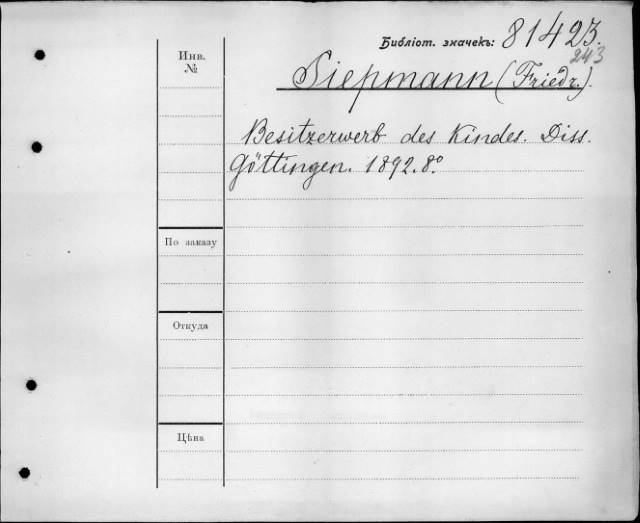 Библіот. значекъ: 81423.
243
Инв. №
Siepmann (Friedr.).
Besitzerwerb des Kindes. Diss.
Göttingen. 1892. 8º
По заказу
Откуда
Цѣна